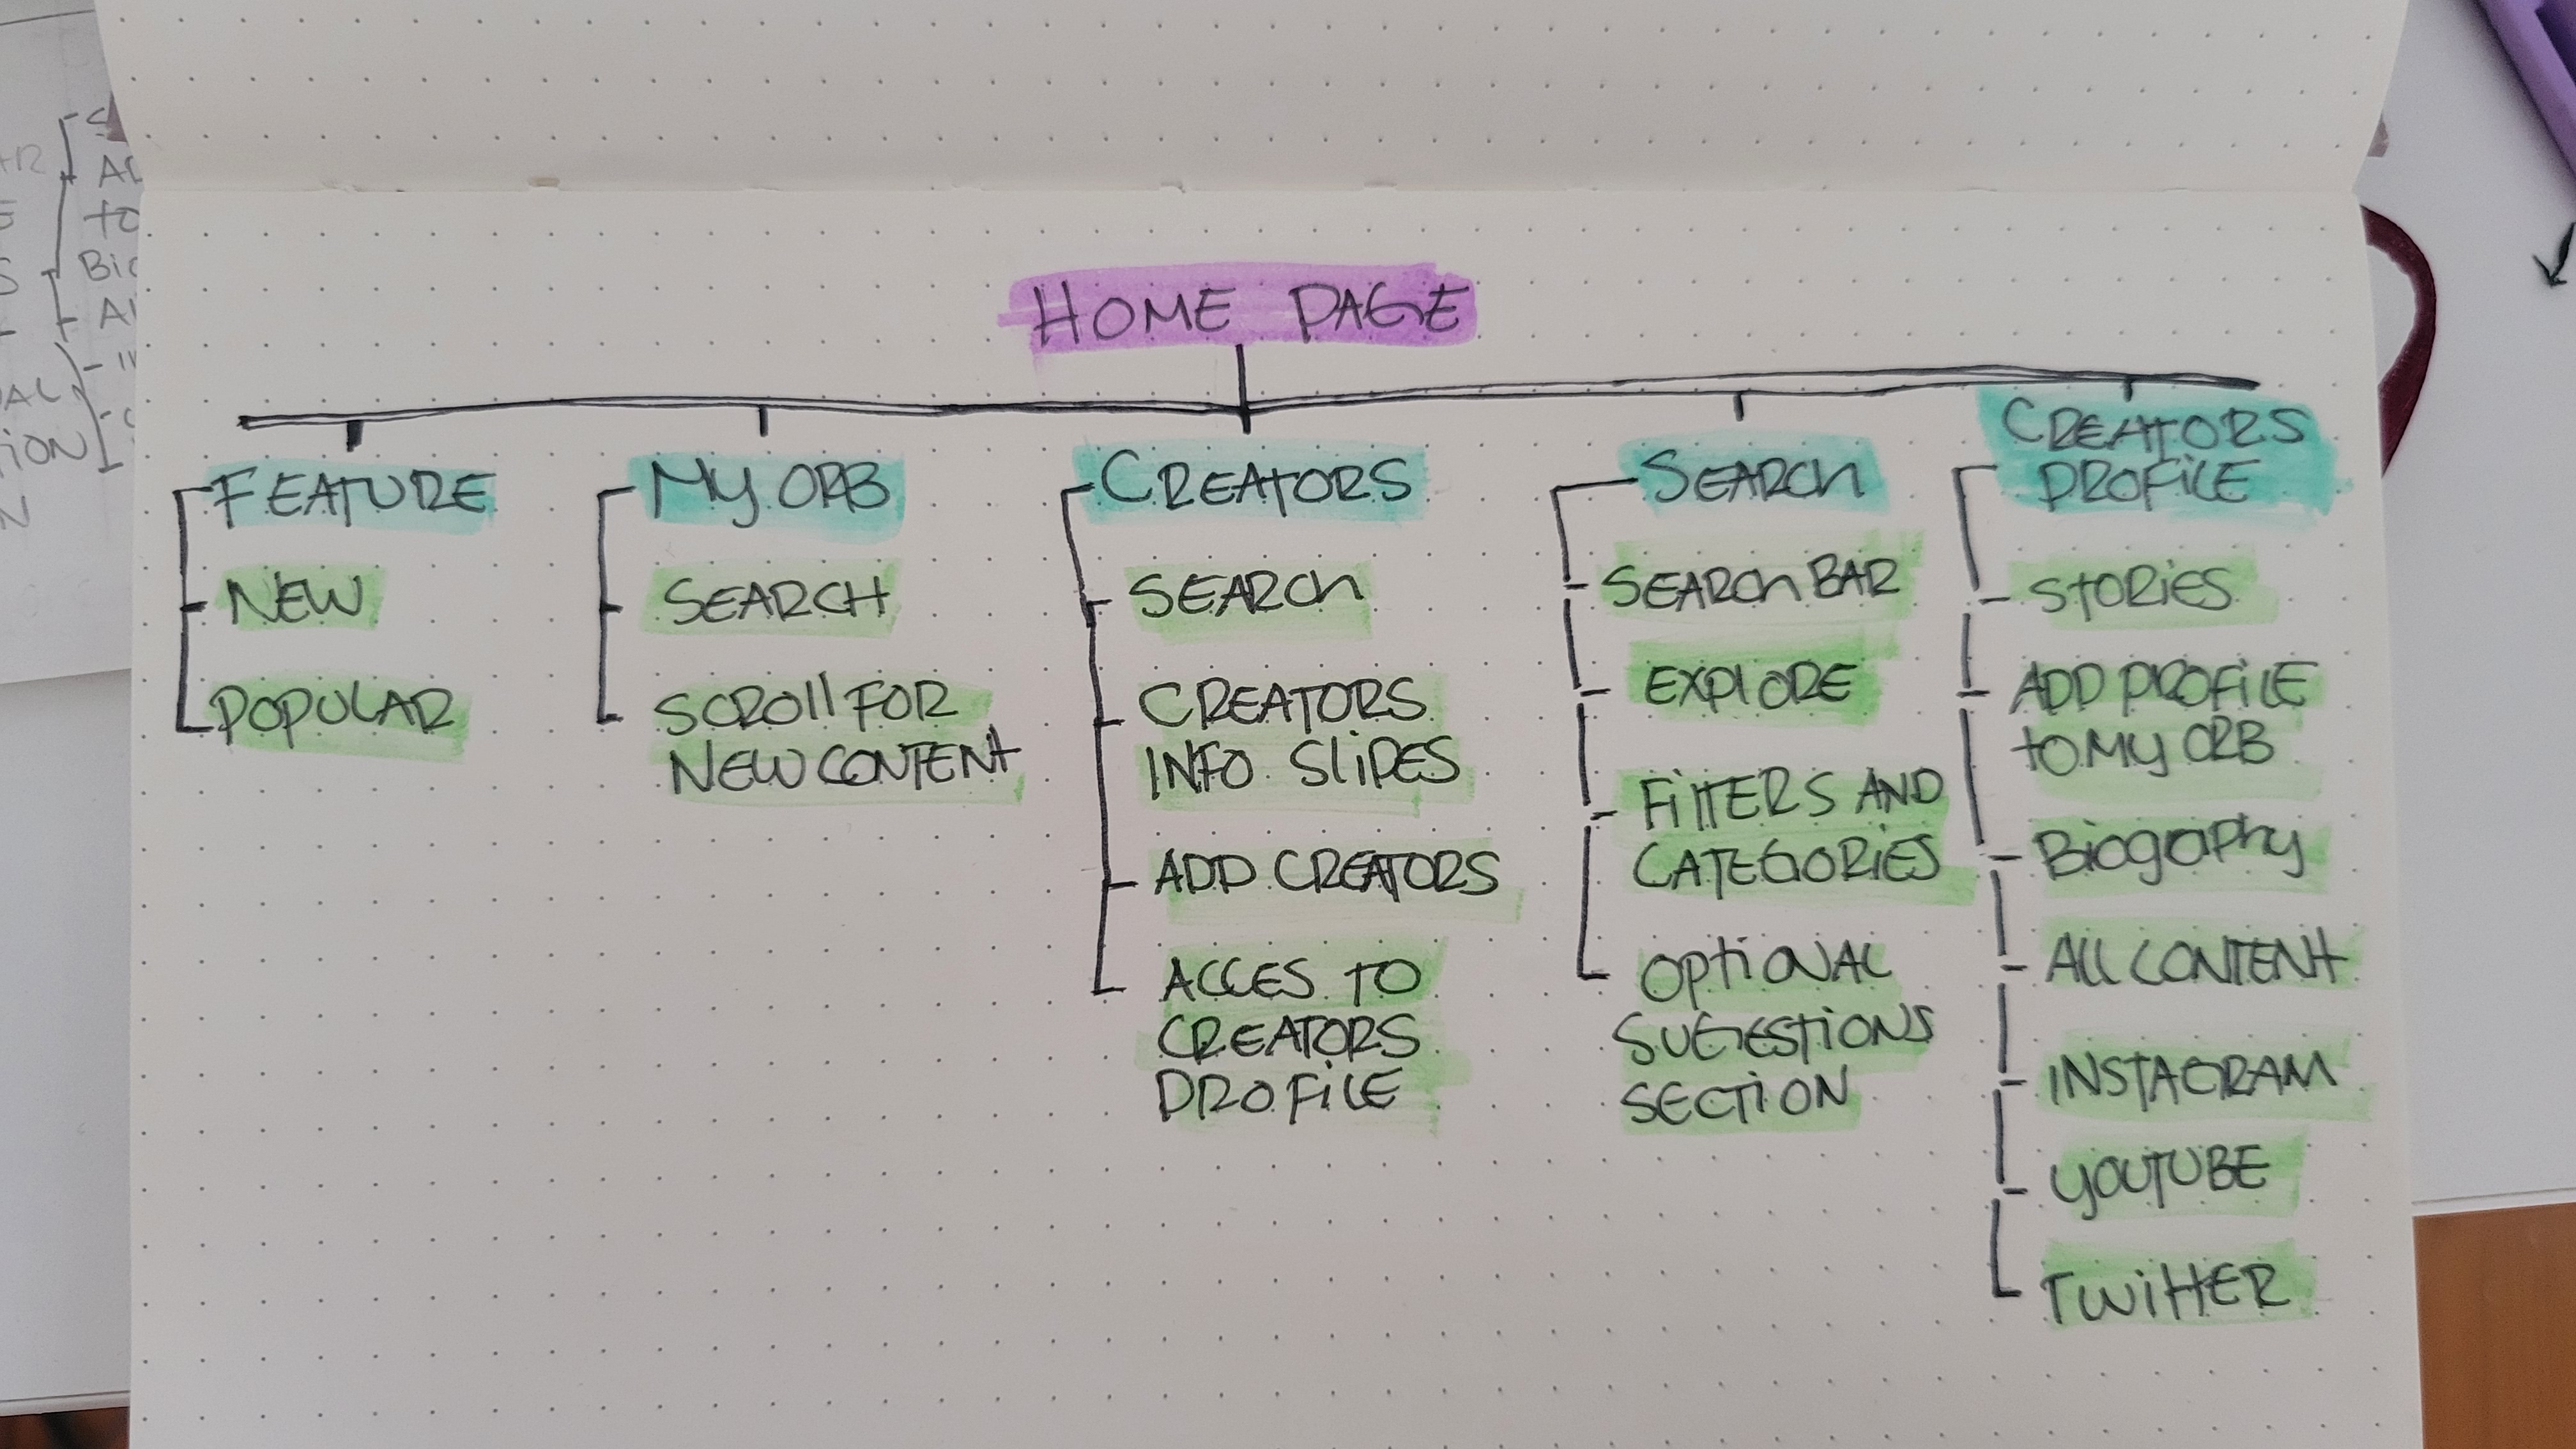 HOME PAGE
FEATURE
NEW
POPULAR
MY ORB
SEARCH
SCROll FOR
NEW CONTENT
CREATORS
SEARCh
CREATORS
INFO SliDES
ADD CREATORS
ACCES TO
CREATORS
PROFiLE
SEARCh
SEARCh BAR
EXPlORE
FilTERS AND
CATEGORiES
OPtiONAL
SUGESTiONS
SECTiON
CREATORS
PROFiLE
StORiES
ADD PROFiLE
tO MY ORB
BiOgRAPhy
All CONTENt
iNSTAGRAM
yOUTUBE
TWittER
AD
tO
Bio
Al
iON